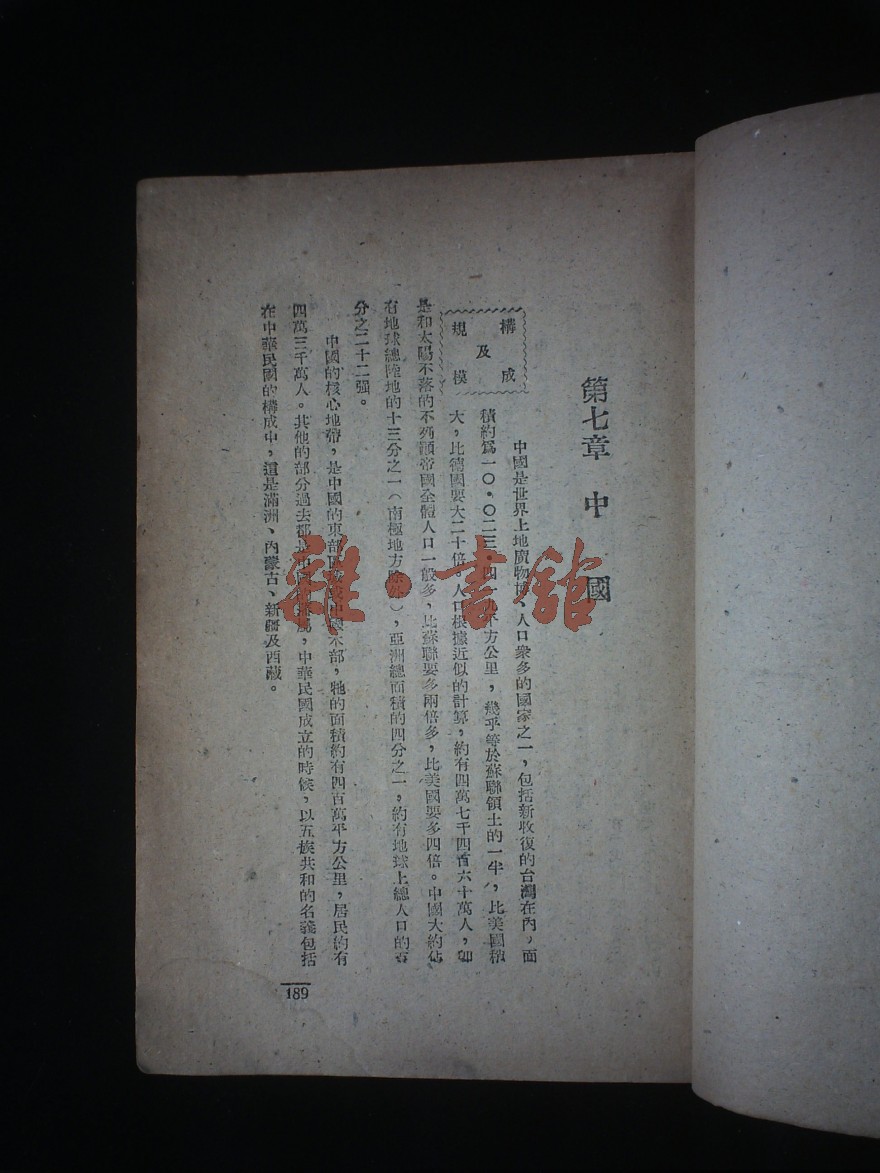 第七章 中國
構成
及
規模
中國是世界上地廣物博、人口衆多的國家之一，包括新收復的台灣在內，面
積約爲一〇・〇二三・四一九平方公里，幾乎等於蘇聯領土的一半，比美國稍
大，比德國要大二十倍。人口根據近似的計算，約有四萬七千四百六十萬人，如
是和太陽不落的不列顛帝國全體人口一般多，比蘇聯要多兩倍多，比美國要多四倍。中國大約佔
有地球總陸地的十三分之一（南極地方除外），亞洲總面積的四分之一，約有地球上總人口的百
分之二十二强。
中國的核心地帶，是中國的東部中國本部，牠的面積約有四百萬平方公里，居民約有
四萬三千萬人。其他的部分過去都是中國的，中華民國成立的時候，以五族共和的名義包括
在中華民國的構成中，這是滿洲、內蒙古、新疆及西藏。
189
雜・書館